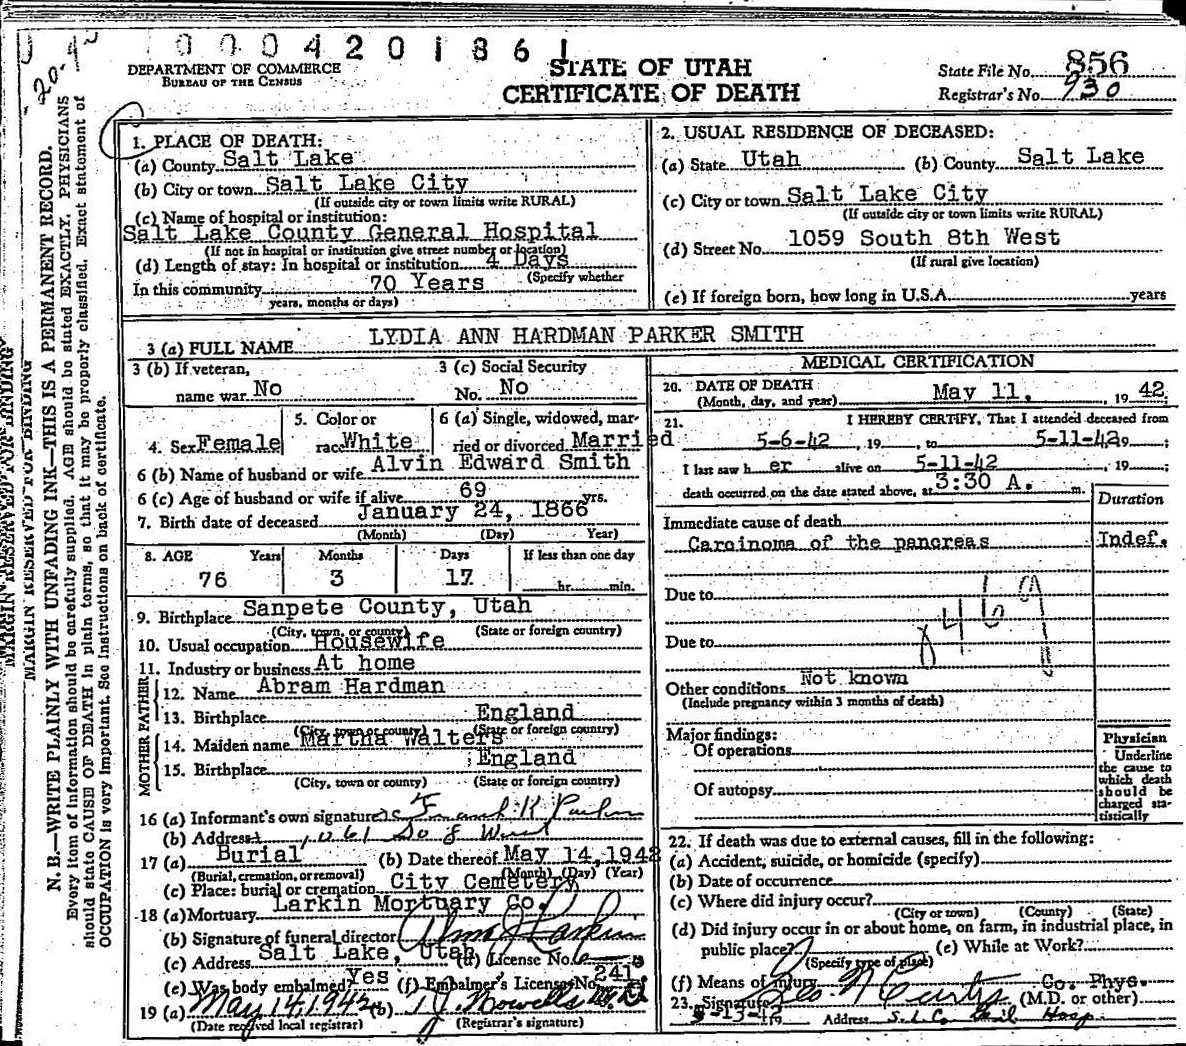 0004201861
DEPARTMENT OF COMMERCE
BUREAU OF THE CENSUS
STATE OF UTAH
CERTIFICATE OF DEATH
State File No. 856
Registrar's No. 930
MARGIN RESERVED FOR BINDING
N. B.—WRITE PLAINLY WITH UNFADING INK—THIS IS A PERMANENT RECORD.
Every item of information should be carefully supplied. AGE should be stated EXACTLY. PHYSICIANS
should state CAUSE OF DEATH in plain terms, so that it may be properly classified. Exact statement of
OCCUPATION is very important. See instructions on back of certificate.
1. PLACE OF DEATH:
(a) County Salt Lake
(b) City or town Salt Lake City
(If outside city or town limits write RURAL)
(c) Name of hospital or institution:
Salt Lake County General Hospital
(If not in hospital or institution give street number or location)
(d) Length of stay: In hospital or institution 4 Days
(Specify whether
In this community 70 Years
years, months or days)
2. USUAL RESIDENCE OF DECEASED:
(a) State Utah (b) County Salt Lake
(c) City or town Salt Lake City
(If outside city or town limits write RURAL)
(d) Street No. 1059 South 8th West
(If rural give location)
(e) If foreign born, how long in U.S.A. years
3 (a) FULL NAME LYDIA ANN HARDMAN PARKER SMITH
3 (b) If veteran,
name war No
3 (c) Social Security
No. No
4. Sex Female
5. Color or
race White
6 (a) Single, widowed, mar-
ried or divorced Married
6 (b) Name of husband or wife Alvin Edward Smith
6 (c) Age of husband or wife if alive 69 yrs.
7. Birth date of deceased January 24, 1866
(Month) (Day) Year)
8. AGE Years Months Days If less than one day
76 3 17 hr. min.
9. Birthplace Sanpete County, Utah
(City, town, or county) (State or foreign country)
10. Usual occupation Housewife
11. Industry or business At home
FATHER
12. Name Abram Hardman
13. Birthplace England
(City, town or county) (State or foreign country)
MOTHER
14. Maiden name Martha Walters
15. Birthplace England
(City, town or county) (State or foreign country)
16 (a) Informant's own signature K Parker
(b) Address 1061 So 8 West
17 (a) Burial (b) Date thereof May 14, 1942
(Burial, cremation, or removal) (Month) (Day) (Year)
(c) Place: burial or cremation City Cemetery
18 (a) Mortuary Larkin Mortuary Co.
(b) Signature of funeral director Larkin
(c) Address Salt Lake, Utah (d) License No.
(e) Was body embalmed? Yes (f) Embalmer's License No. 241
19 (a) May 14, 1942 (b) Howells M.D.
(Date received local registrar) (Registrar's signature)
MEDICAL CERTIFICATION
20. DATE OF DEATH May 11, 1942
(Month, day, and year)
21. I HEREBY CERTIFY, That I attended deceased from
5-6-42, 19, to 5-11-42 19;
I last saw her alive on 5-11-42, 19;
death occurred on the date stated above, at 3:30 A. m.
Duration
Immediate cause of death
Carcinoma of the pancreas Indef.
Due to
Due to
Other conditions Not known
(Include pregnancy within 3 months of death)
Major findings:
Of operations
Of autopsy
Physician
Underline
the cause to
which death
should be
charged sta-
tistically
22. If death was due to external causes, fill in the following:
(a) Accident, suicide, or homicide (specify)
(b) Date of occurrence
(c) Where did injury occur?
(City or town) (County) (State)
(d) Did injury occur in or about home, on farm, in industrial place, in
public place? (e) While at Work?
(Specify type of place)
(f) Means of injury
23. Signature Geo. N Curtis Co. Phys. (M.D. or other)
5-13-42 Address S.L.C. Hosp